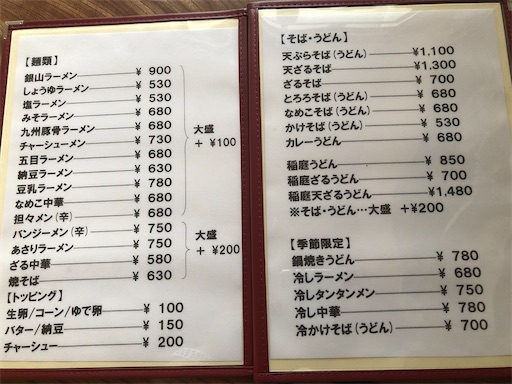 【麺類】
銀山ラーメン ¥ 900
しょうゆラーメン ¥ 530
塩ラーメン ¥ 530
みそラーメン ¥ 680
九州豚骨ラーメン ¥ 680
チャーシューメン ¥ 730
五目ラーメン ¥ 680
納豆ラーメン ¥ 630
豆乳ラーメン ¥ 780
なめこ中華 ¥ 680
担々メン(辛) ¥ 680
大盛
+ ¥100
バンジーメン(辛) ¥ 750
あさりラーメン ¥ 750
ざる中華 ¥ 580
焼そば ¥ 630
大盛
+ ¥200
【トッピング】
生卵/コーン/ゆで卵 ¥ 100
バター/納豆 ¥ 150
チャーシュー ¥ 200
【そば・うどん】
天ぷらそば(うどん) ¥1,100
天ざるそば ¥1,300
ざるそば ¥ 700
とろろそば(うどん) ¥ 680
なめこそば(うどん) ¥ 680
かけそば(うどん) ¥ 530
カレーうどん ¥ 680
稲庭うどん ¥ 850
稲庭ざるうどん ¥ 700
稲庭天ざるうどん ¥1,480
※そば・うどん…大盛 +¥200
【季節限定】
鍋焼きうどん ¥ 780
冷しラーメン ¥ 680
冷しタンタンメン ¥ 750
冷し中華 ¥ 780
冷かけそば(うどん) ¥ 700